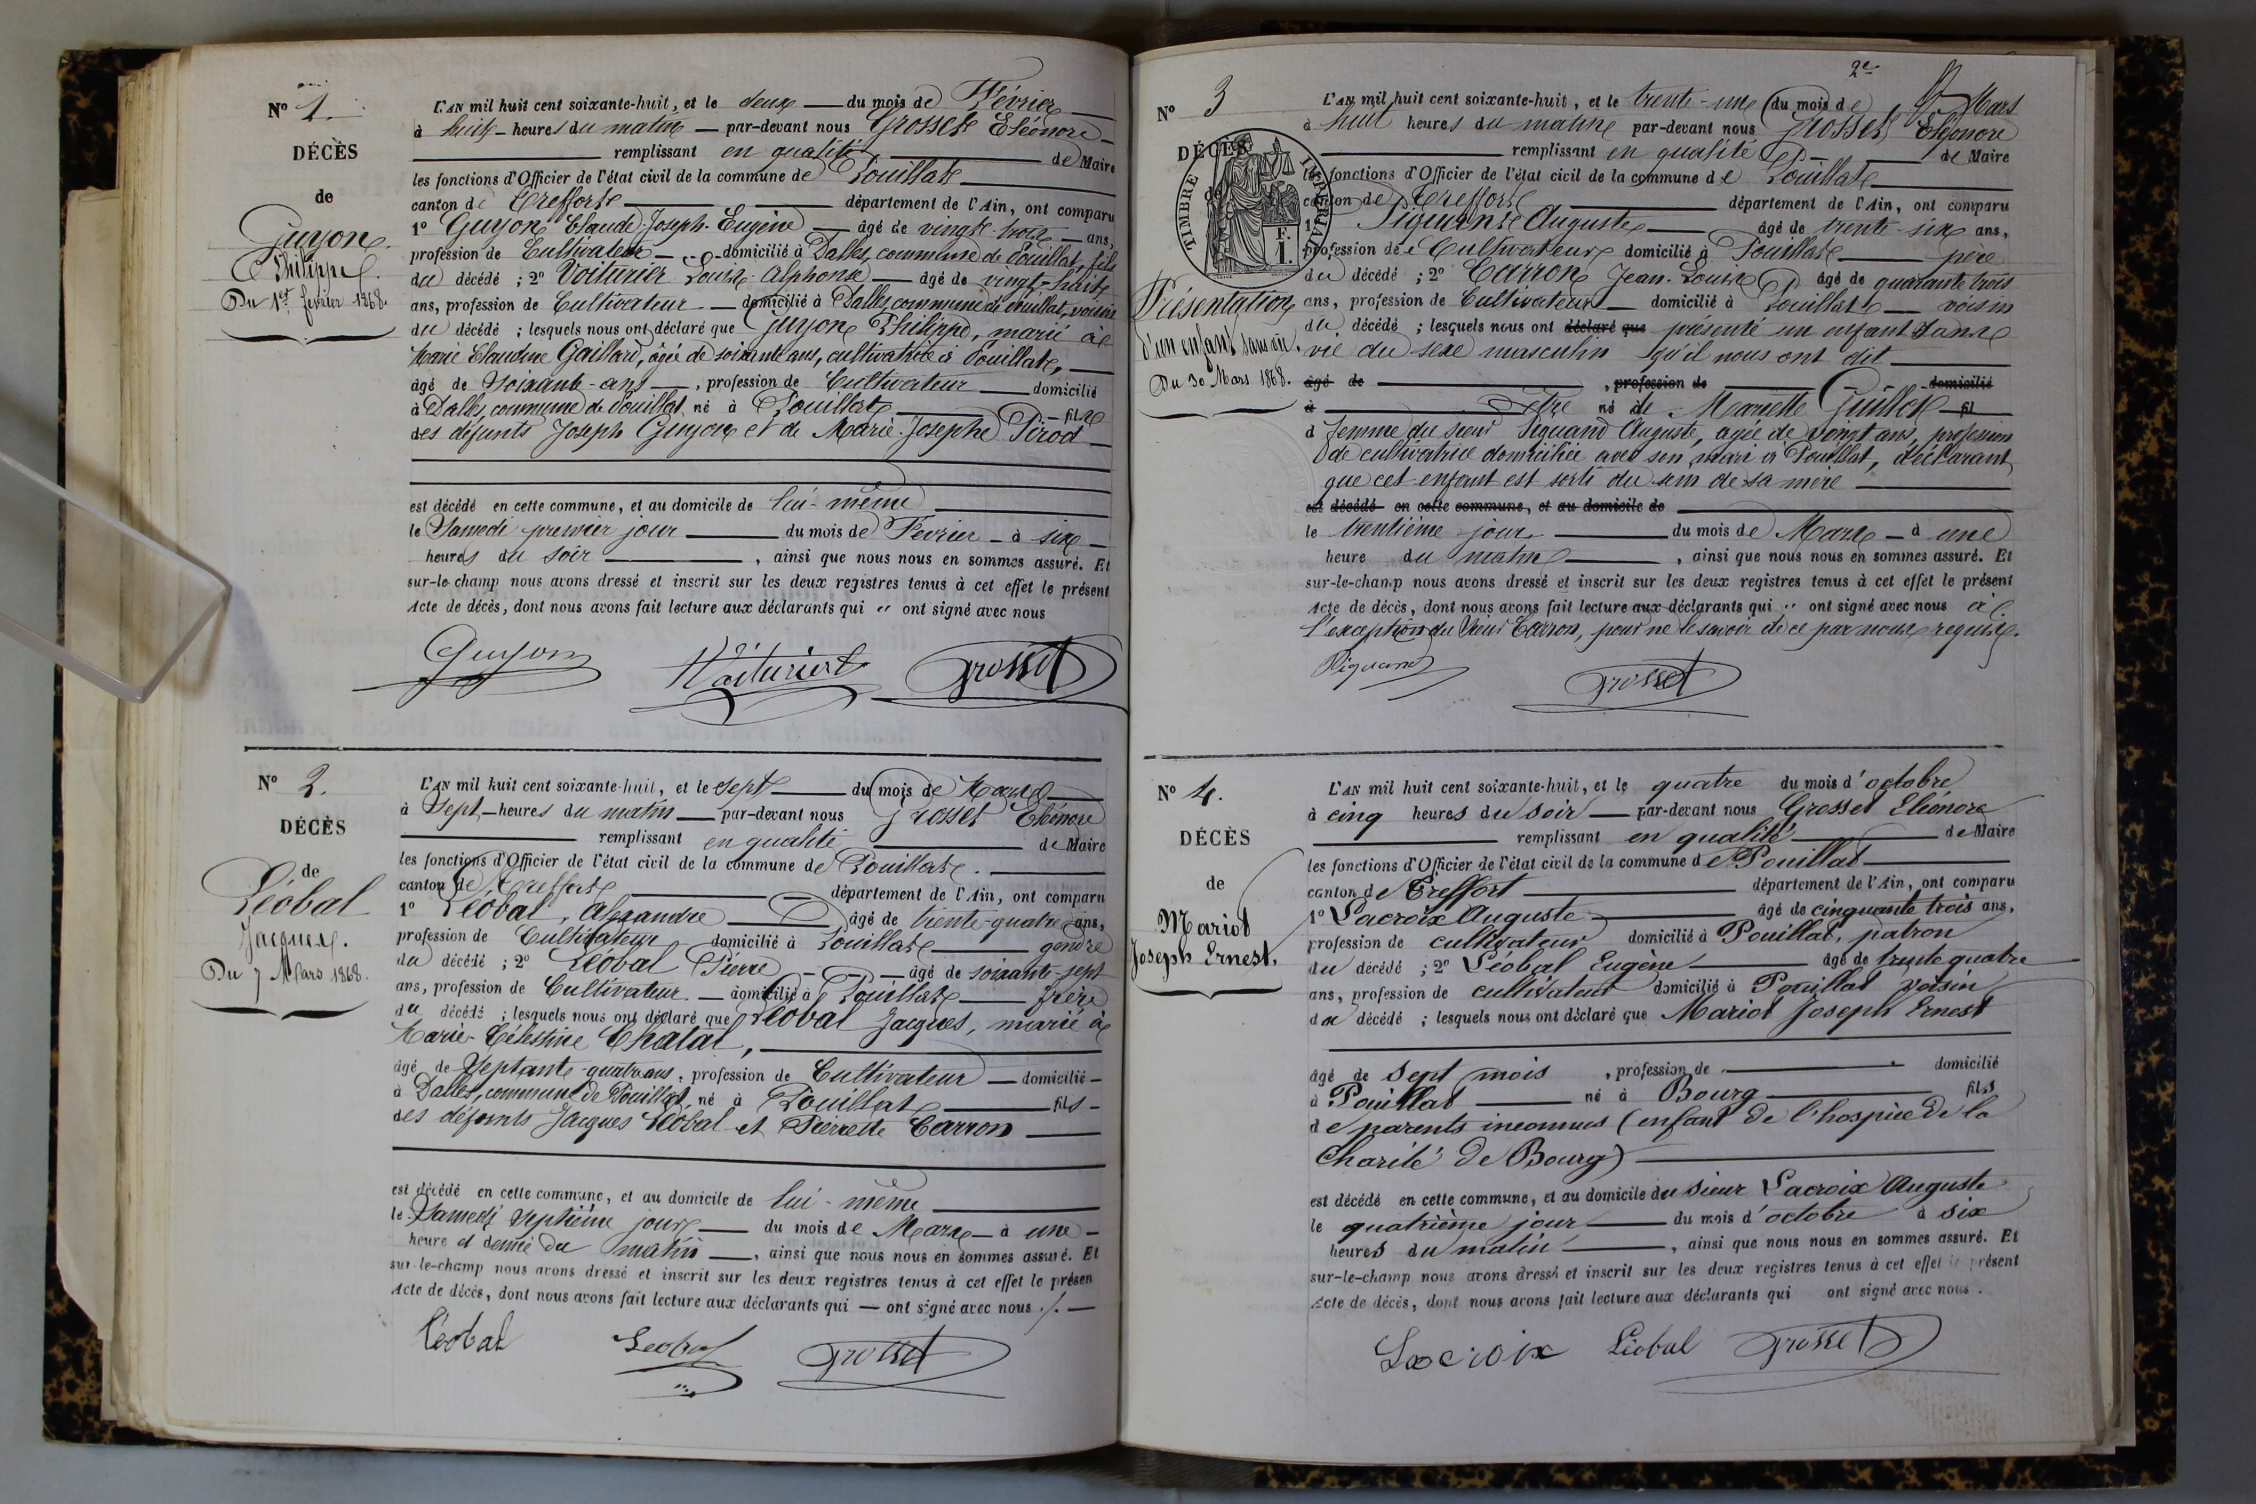 N° 1.
DÉCÈS
de
Guyon
Philippe.
Du 1er février 1868.
L'AN mil huit cent soixante-huit, et le deux du mois de Février
à huit heures du matin par-devant nous Grosset Eléonore
remplissant en qualité de Maire
les fonctions d'Officier de l'état civil de la commune de Pouillat
canton de Treffort département de l'Ain, ont comparu
1° Guyon Claude-Joseph-Eugène âgé de vingt-trois ans,
profession de Cultivateur domicilié à Dalles, commune de Pouillat, fils
du décédé ; 2° Voiturier Louis-Alphonse âgé de vingt-huit
ans, profession de Cultivateur domicilié à Dalles commune de Pouillat, voisin
du décédé ; lesquels nous ont déclaré que Guyon Philippe, marié à
Marie Claudine Gaillard, âgée de soixante ans, cultivatrice à Pouillat,
âgé de Soixante-ans, profession de Cultivateur domicilié
à Dalles, commune de Pouillat né à Pouillat fils
des défunts Joseph Guyon et de Marie-Josephe Pirod
est décédé en cette commune, et au domicile de lui-même
le Samedi premier jour du mois de Février à six
heures du soir, ainsi que nous nous en sommes assuré. Et
sur-le-champ nous avons dressé et inscrit sur les deux registres tenus à cet effet le présent
Acte de décès, dont nous avons fait lecture aux déclarants qui " ont signé avec nous
Guyon Voiturier Grosset
N° 2.
DÉCÈS
de
Léobal
Jacques.
Du 7 Mars 1868.
L'AN mil huit cent soixante-huit, et le sept du mois de Mars
à Sept heures du matin par-devant nous Grosset Eléonore
remplissant en qualité de Maire
les fonctions d'Officier de l'état civil de la commune de Pouillat.
canton de Treffort département de l'Ain, ont comparu
1° Léobal, Alexandre âgé de trente-quatre ans,
profession de Cultivateur domicilié à Pouillat gendre
du décédé ; 2° Léobal Pierre âgé de soixante-sept
ans, profession de Cultivateur domicilié à Pouillat frère
du décédé ; lesquels nous ont déclaré que Léobal Jacques, marié à
Marie-Célestine Chatal,
âgé de Septante-quatre ans, profession de Cultivateur domicilié
à Dalles, commune de Pouillat, né à Pouillat fils
des défunts Jacques Léobal et Pierrette Carron
est décédé en cette commune, et au domicile de lui-même
le Samedi Septième jour du mois de Mars à une
heure et demie du matin, ainsi que nous nous en sommes assuré. Et
sur-le-champ nous avons dressé et inscrit sur les deux registres tenus à cet effet le présen
Acte de décès, dont nous avons fait lecture aux déclarants qui — ont signé avec nous ./.
Léobal Léobal Grosset
2e
N° 3
DÉCÈS
de
TIMBRE IMPÉRIAL
F.
1.
Présentation
d'un enfant sans vie.
Du 30 Mars 1868.
L'AN mil huit cent soixante-huit, et le trente-un du mois de Mars
à huit heures du matin par-devant nous Grosset Eléonore
remplissant en qualité de Maire
les fonctions d'Officier de l'état civil de la commune de Pouillat
canton de Treffort département de l'Ain, ont comparu
1° Piquand Auguste âgé de trente-six ans,
profession de Cultivateur domicilié à Pouillat père
du décédé ; 2° Carron Jean-Louis âgé de quarante trois
ans, profession de Cultivateur domicilié à Pouillat voisin
du décédé ; lesquels nous ont déclaré que présenté un enfant sans
vie du sexe masculin qu'il nous ont dit
âgé de , profession de domicilié
à être né de Mariette Guillet fil
d femme du sieur Piquand Auguste, agée de vingt ans, profession
de cultivatrice domiciliée avec son mari à Pouillat, déclarant
que cet enfant est sorti du sein de sa mère
est décédé en cette commune, et au domicile de
le trentième jour du mois de Mars à une
heure du matin, ainsi que nous nous en sommes assuré. Et
sur-le-champ nous avons dressé et inscrit sur les deux registres tenus à cet effet le présent
Acte de décès, dont nous avons fait lecture aux déclarants qui " ont signé avec nous à
l'exception du Sieur Carron, pour ne le savoir de ce par nous requis.
Piquand Grosset
N° 4.
DÉCÈS
de
Mariot
Joseph Ernest.
L'AN mil huit cent soixante-huit, et le quatre du mois d'octobre
à cinq heures du soir par-devant nous Grosset Eléonore
remplissant en qualité de Maire
les fonctions d'Officier de l'état civil de la commune de Pouillat
canton de Treffort département de l'Ain, ont comparu
1° Lacroix Auguste âgé de cinquante trois ans,
profession de cultivateur domicilié à Pouillat, patron
du décédé ; 2° Léobal Eugène âgé de trente quatre
ans, profession de cultivateur domicilié à Pouillat voisin
du décédé ; lesquels nous ont déclaré que Mariot Joseph Ernest
âgé de sept mois, profession de domicilié
à Pouillat né à Bourg fils
de parents inconnus (enfant de l'hospice de la
Charité de Bourg)
est décédé en cette commune, et au domicile du sieur Lacroix Auguste
le quatrième jour du mois d'octobre à six
heures du matin, ainsi que nous nous en sommes assuré. Et
sur-le-champ nous avons dressé et inscrit sur les deux registres tenus à cet effet le présent
Acte de décès, dont nous avons fait lecture aux déclarants qui ont signé avec nous.
Lacroix Léobal Grosset